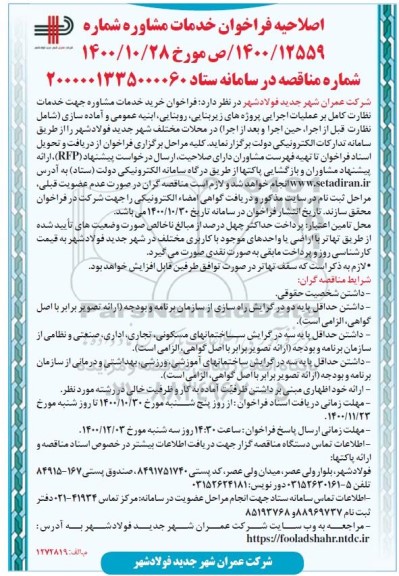 اصلاحیه فراخوان خدمات مشاوره شماره
۱۴۰۰/۱۲۵۵۹/ص مورخ ۱۴۰۰/۱۰/۲۸
شماره مناقصه در سامانه ستاد ۲۰۰۰۰۰۱۳۳۵۰۰۰۰۶۰
شرکت عمران شهر جدید فولادشهر
شرکت عمران شهر جدید فولادشهر در نظر دارد: فراخوان خرید خدمات مشاوره جهت خدمات
نظارت کامل بر عملیات اجرایی پروژه های زیربنایی، روبنایی، ابنیه عمومی و آماده سازی (شامل
نظارت قبل از اجرا، حین اجرا و بعد از اجرا) در محلات مختلف شهر جدید فولادشهر را از طریق
سامانه تدارکات الکترونیکی دولت برگزار نماید. کلیه مراحل برگزاری فراخوان از دریافت و تحویل
اسناد فراخوان تا تهیه فهرست مشاوران دارای صلاحیت، ارسال درخواست پیشنهاد (RFP)، ارائه
پیشنهاد مشاوران و بازگشایی پاکتها از طریق درگاه سامانه الکترونیکی دولت (ستاد) به آدرس
www.setadiran.ir انجام خواهد شد و لازم است مناقصه گران در صورت عدم عضویت قبلی،
مراحل ثبت نام در سایت مذکور و دریافت گواهی امضاء الکترونیکی را جهت شرکت در فراخوان
محقق سازند. تاریخ انتشار فراخوان در سامانه تاریخ ۱۴۰۰/۱۰/۳۰ می باشد.
محل تامین اعتبار: پرداخت حداکثر چهل درصد از مبالغ ناخالص صورت وضعیت های تأیید شده
از طریق تهاتر با اراضی یا واحدهای موجود با کاربری مختلف در شهر جدید فولادشهر به قیمت
کارشناسی روز و پرداخت مابقی به صورت نقدی صورت می گیرد.
*لازم به ذکر است که سقف تهاتر در صورت توافق طرفین قابل افزایش خواهد بود.
شرایط مناقصه گران:
- داشتن شخصیت حقوقی.
- داشتن حداقل پایه دو در گرایش راه سازی از سازمان برنامه و بودجه (ارائه تصویر برابر با اصل
گواهی، الزامی است).
- داشتن حداقل پایه سه در گرایش ساختمانهای مسکونی، تجاری، اداری، صنعتی و نظامی از
سازمان برنامه و بودجه (ارائه تصویر برابر با اصل گواهی، الزامی است).
- داشتن حداقل پایه سه در گرایش ساختمانهای آموزشی، ورزشی، بهداشتی و درمانی از سازمان
برنامه و بودجه (ارائه تصویر برابر با اصل گواهی، الزامی است).
- ارائه خود اظهاری مبنی بر داشتن ظرفیت آماده به کار و ظرفیت خالی در رشته مورد نظر.
- مهلت زمانی دریافت اسناد فراخوان: از روز پنج شنبه مورخ ۱۴۰۰/۱۰/۳۰ تا روز شنبه مورخ
۱۴۰۰/۱۱/۲۳.
- مهلت زمانی ارسال پاسخ فراخوان: ساعت ۱۴:۳۰ روز سه شنبه مورخ ۱۴۰۰/۱۲/۰۳.
-اطلاعات تماس دستگاه مناقصه گزار جهت دریافت اطلاعات بیشتر در خصوص اسناد مناقصه و
ارائه پاکتها:
فولادشهر، بلوار ولی عصر، میدان ولی عصر، کد پستی ۸۴۹۱۷۵۱۷۴۰، صندوق پستی ۱۶۷-۸۴۹۱۵
تلفن ۵-۰۳۱۵۲۶۳۰۱۶۱ دورنویس: ۰۳۱۵۲۶۲۴۱۸۱
-اطلاعات تماس سامانه ستاد جهت انجام مراحل عضویت در سامانه: مرکز تماس ۴۱۹۳۴-۰۲۱ دفتر
ثبت نام ۸۸۹۶۹۷۳۷ و ۸۵۱۹۳۷۶۸
- مراجعه به وب سایت شرکت عمران شهر جدید فولادشهر به آدرس:
https://fooladshahr.ntdc.ir
م.الف: ۱۲۷۲۸۱۹
شرکت عمران شهر جدید فولادشهر